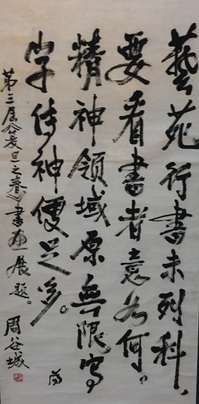 藝苑行書未列科
要看書者意如何
精神領域原無限寫
字傳神便足多。為
第三届复旦之春書画展題。周谷城